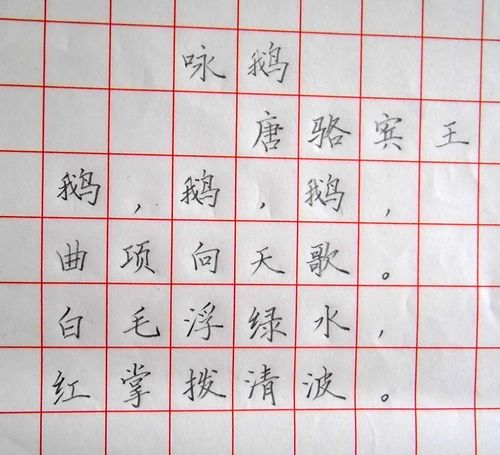 咏鹅
唐骆宾王
鹅，鹅，鹅，
曲项向天歌。
白毛浮绿水，
红掌拨清波。